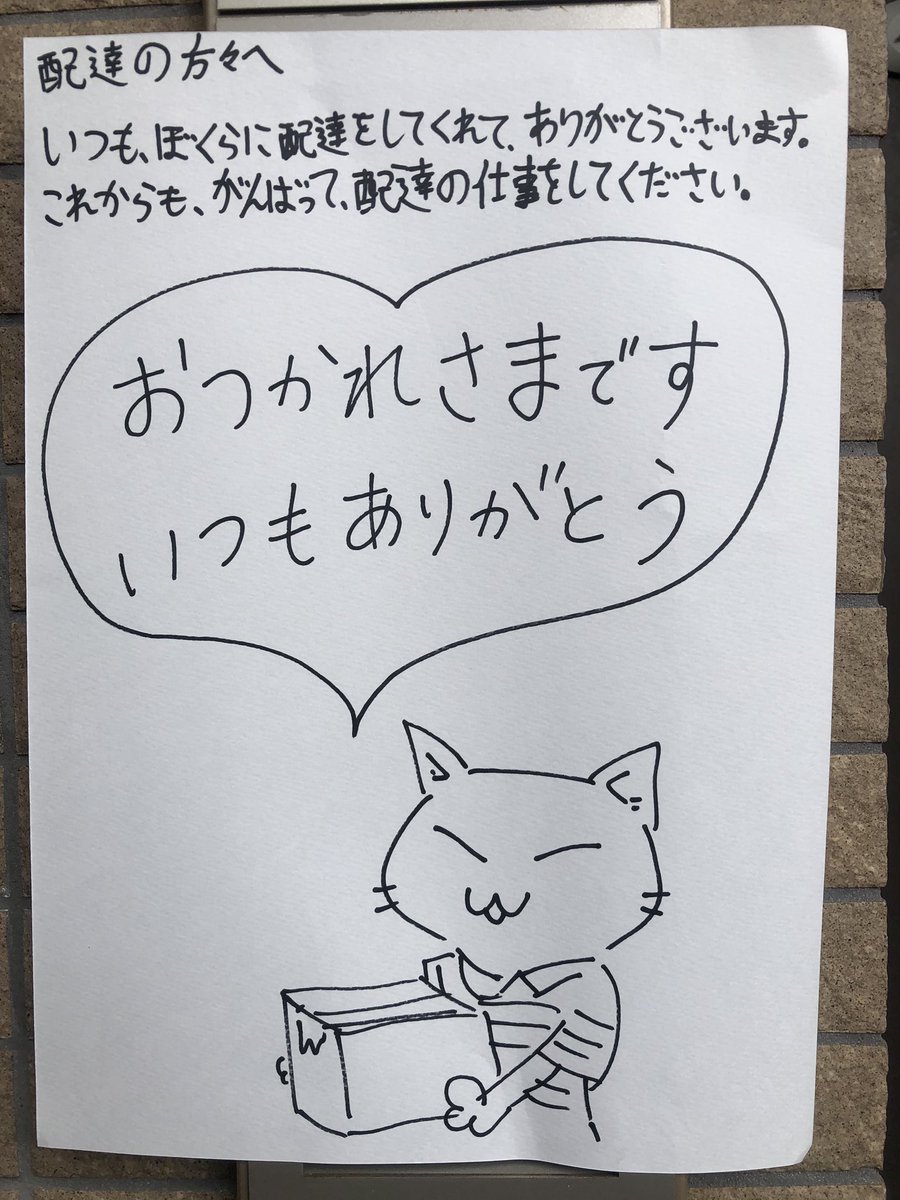 配達の方々へ
いつも、ぼくらに配達をしてくれて、ありがとうございます。
これからも、がんばって、配達の仕事をしてください。
おつかれさまです
いつもありがとう